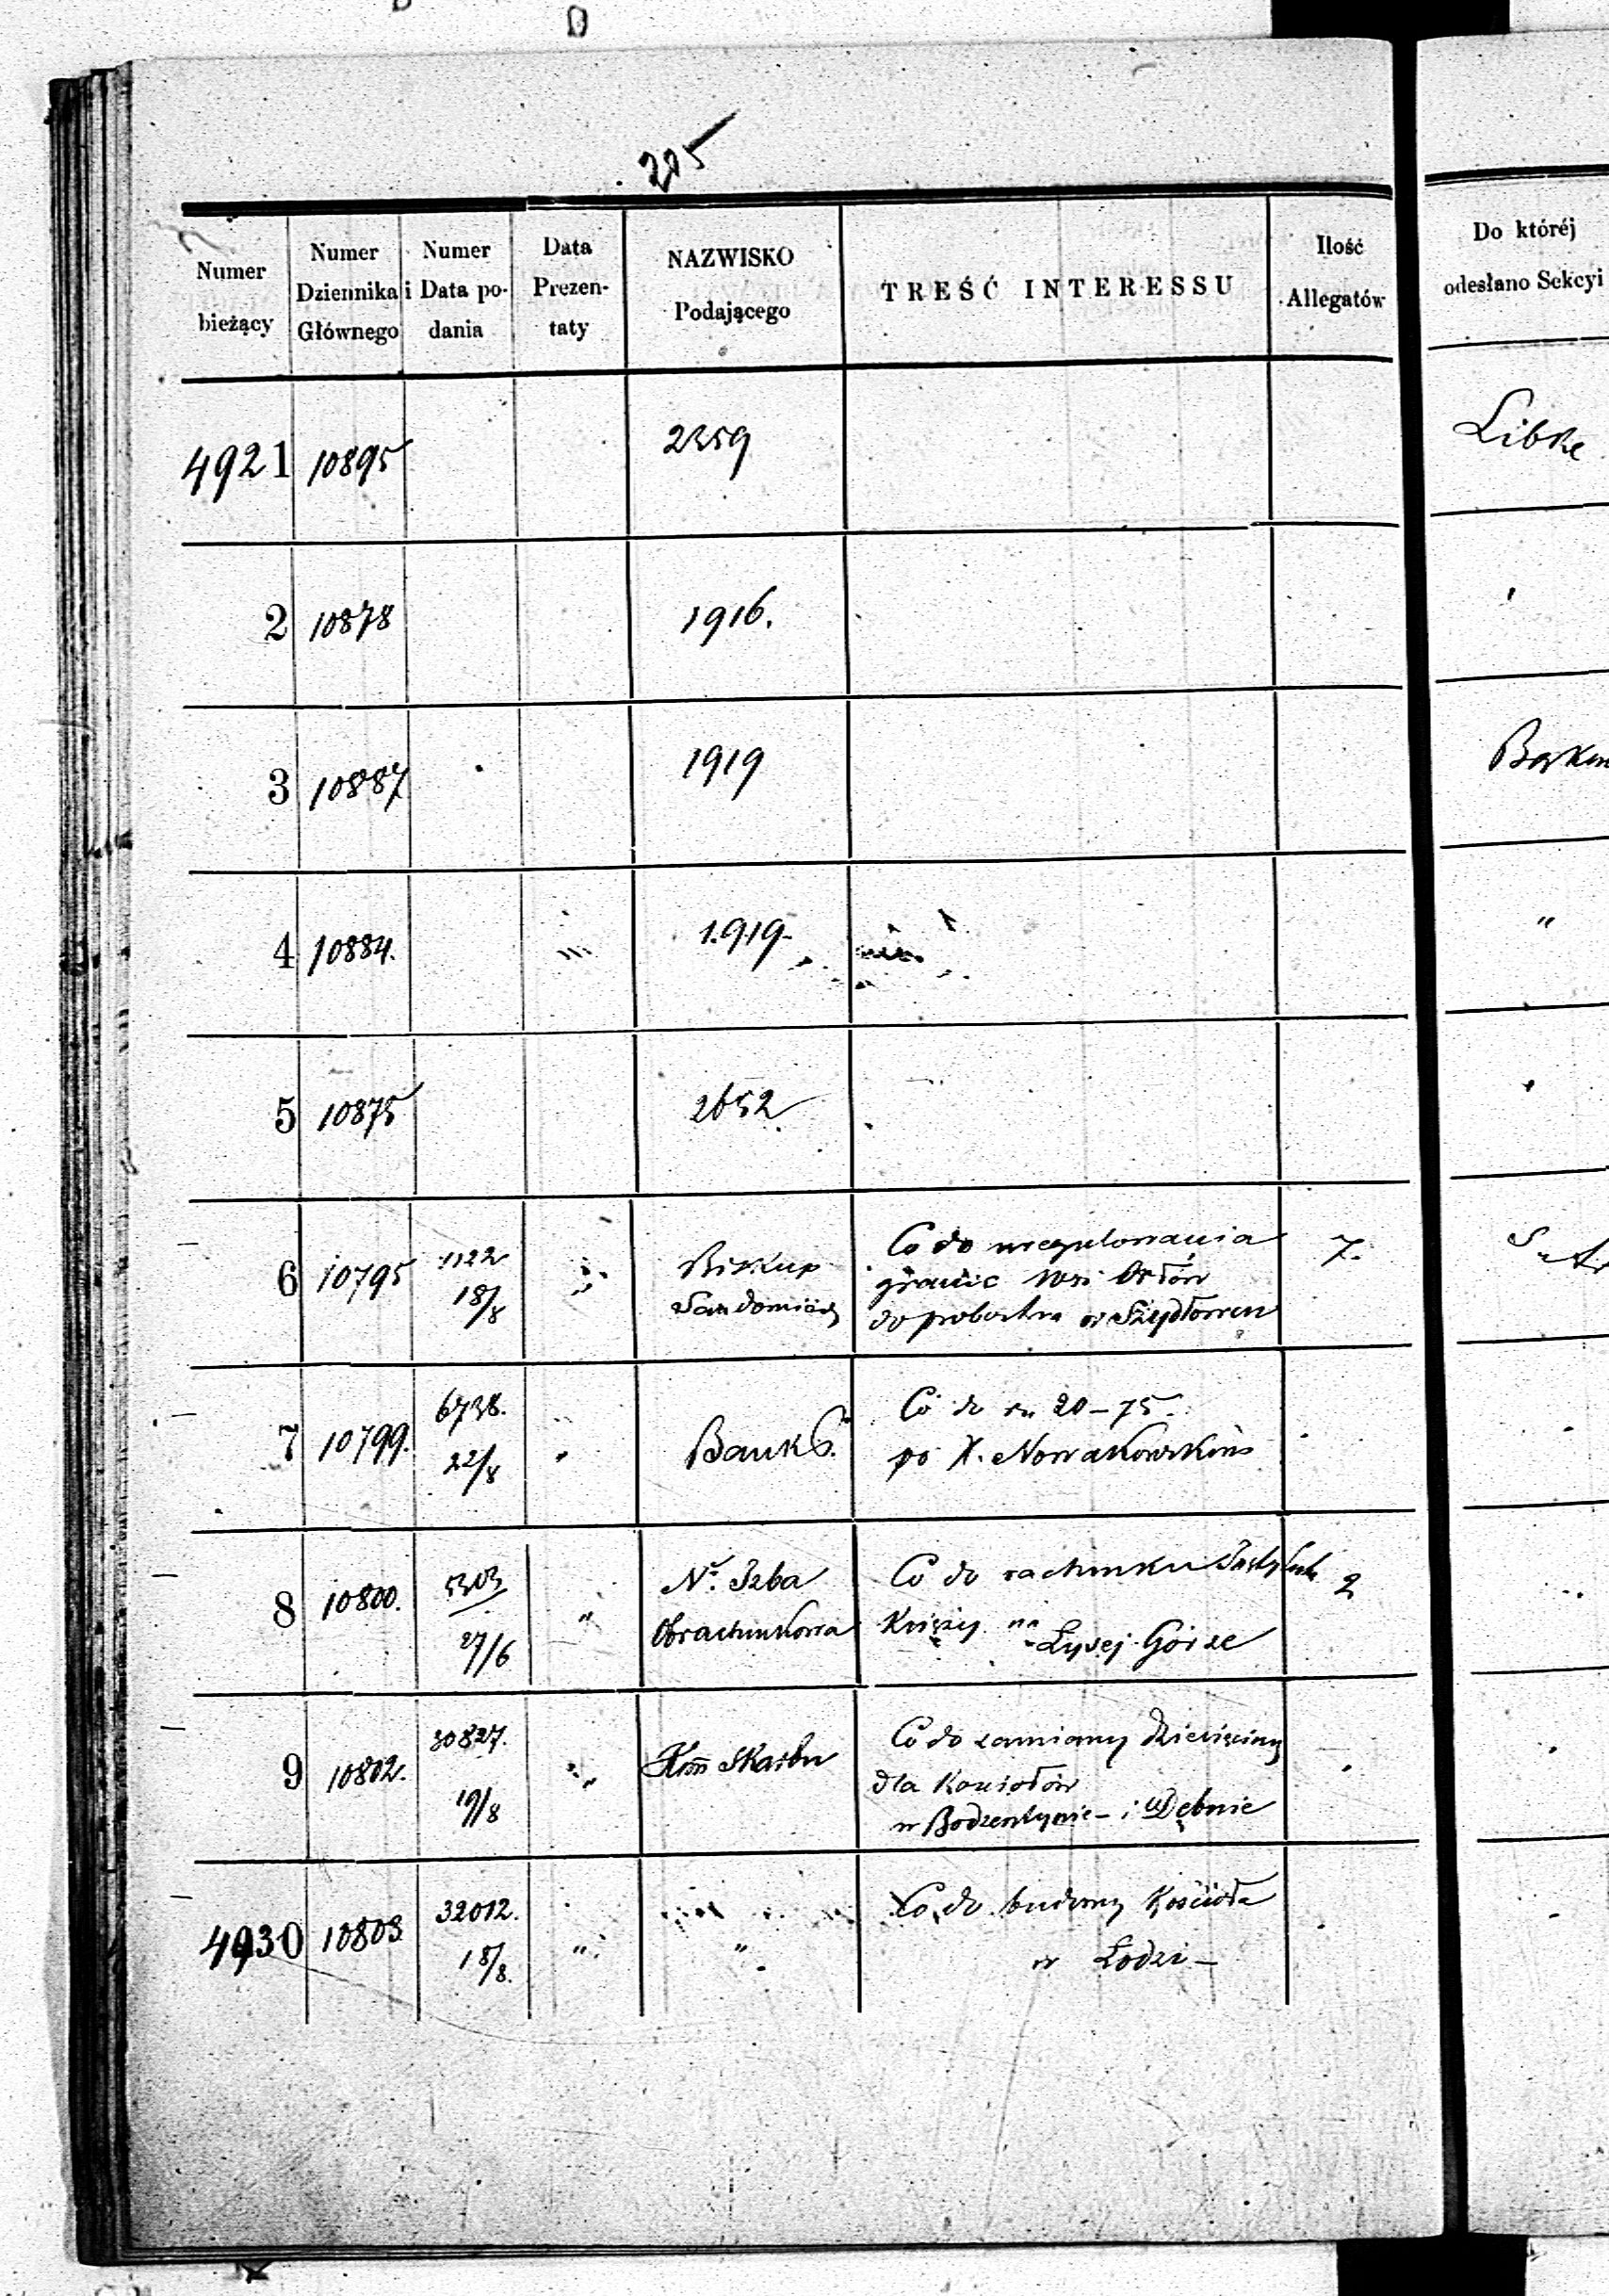 205
Numer bieżący
Numer Dziennika Głównego
Numer i Data podania
Data Prezentaty
NAZWISKO Podającego
TREŚĆ INTERESSU
Ilość Allegatów
Do któréj odesłano Sekcyi
4921 10895 2359 Libke
2 10878 1916.
3 10887 1919
4 10884. 1919 "
5 10875 2652
6 10795 1122 18/8 Biskup Co do uregulowania 7.
granic wsi
do probostwa w
7 10799. 6738. 22/8 Bank P. Co do rs 20–75.
po X. Nowakowskim
8 10800. 5303 27/6 " Nª. Izba Co do rachunku 2
Obrachunkowa Księży na Łysej Górze
9 10802. 30827. 19/8 Kom Skarbu Co do zamiany Dziesięciny
dla Kościołów
w Bodzentynie – i Dębnie
4930 10803 32012. 18/8. " " Co do budowy Kościoła
w Łodzi –